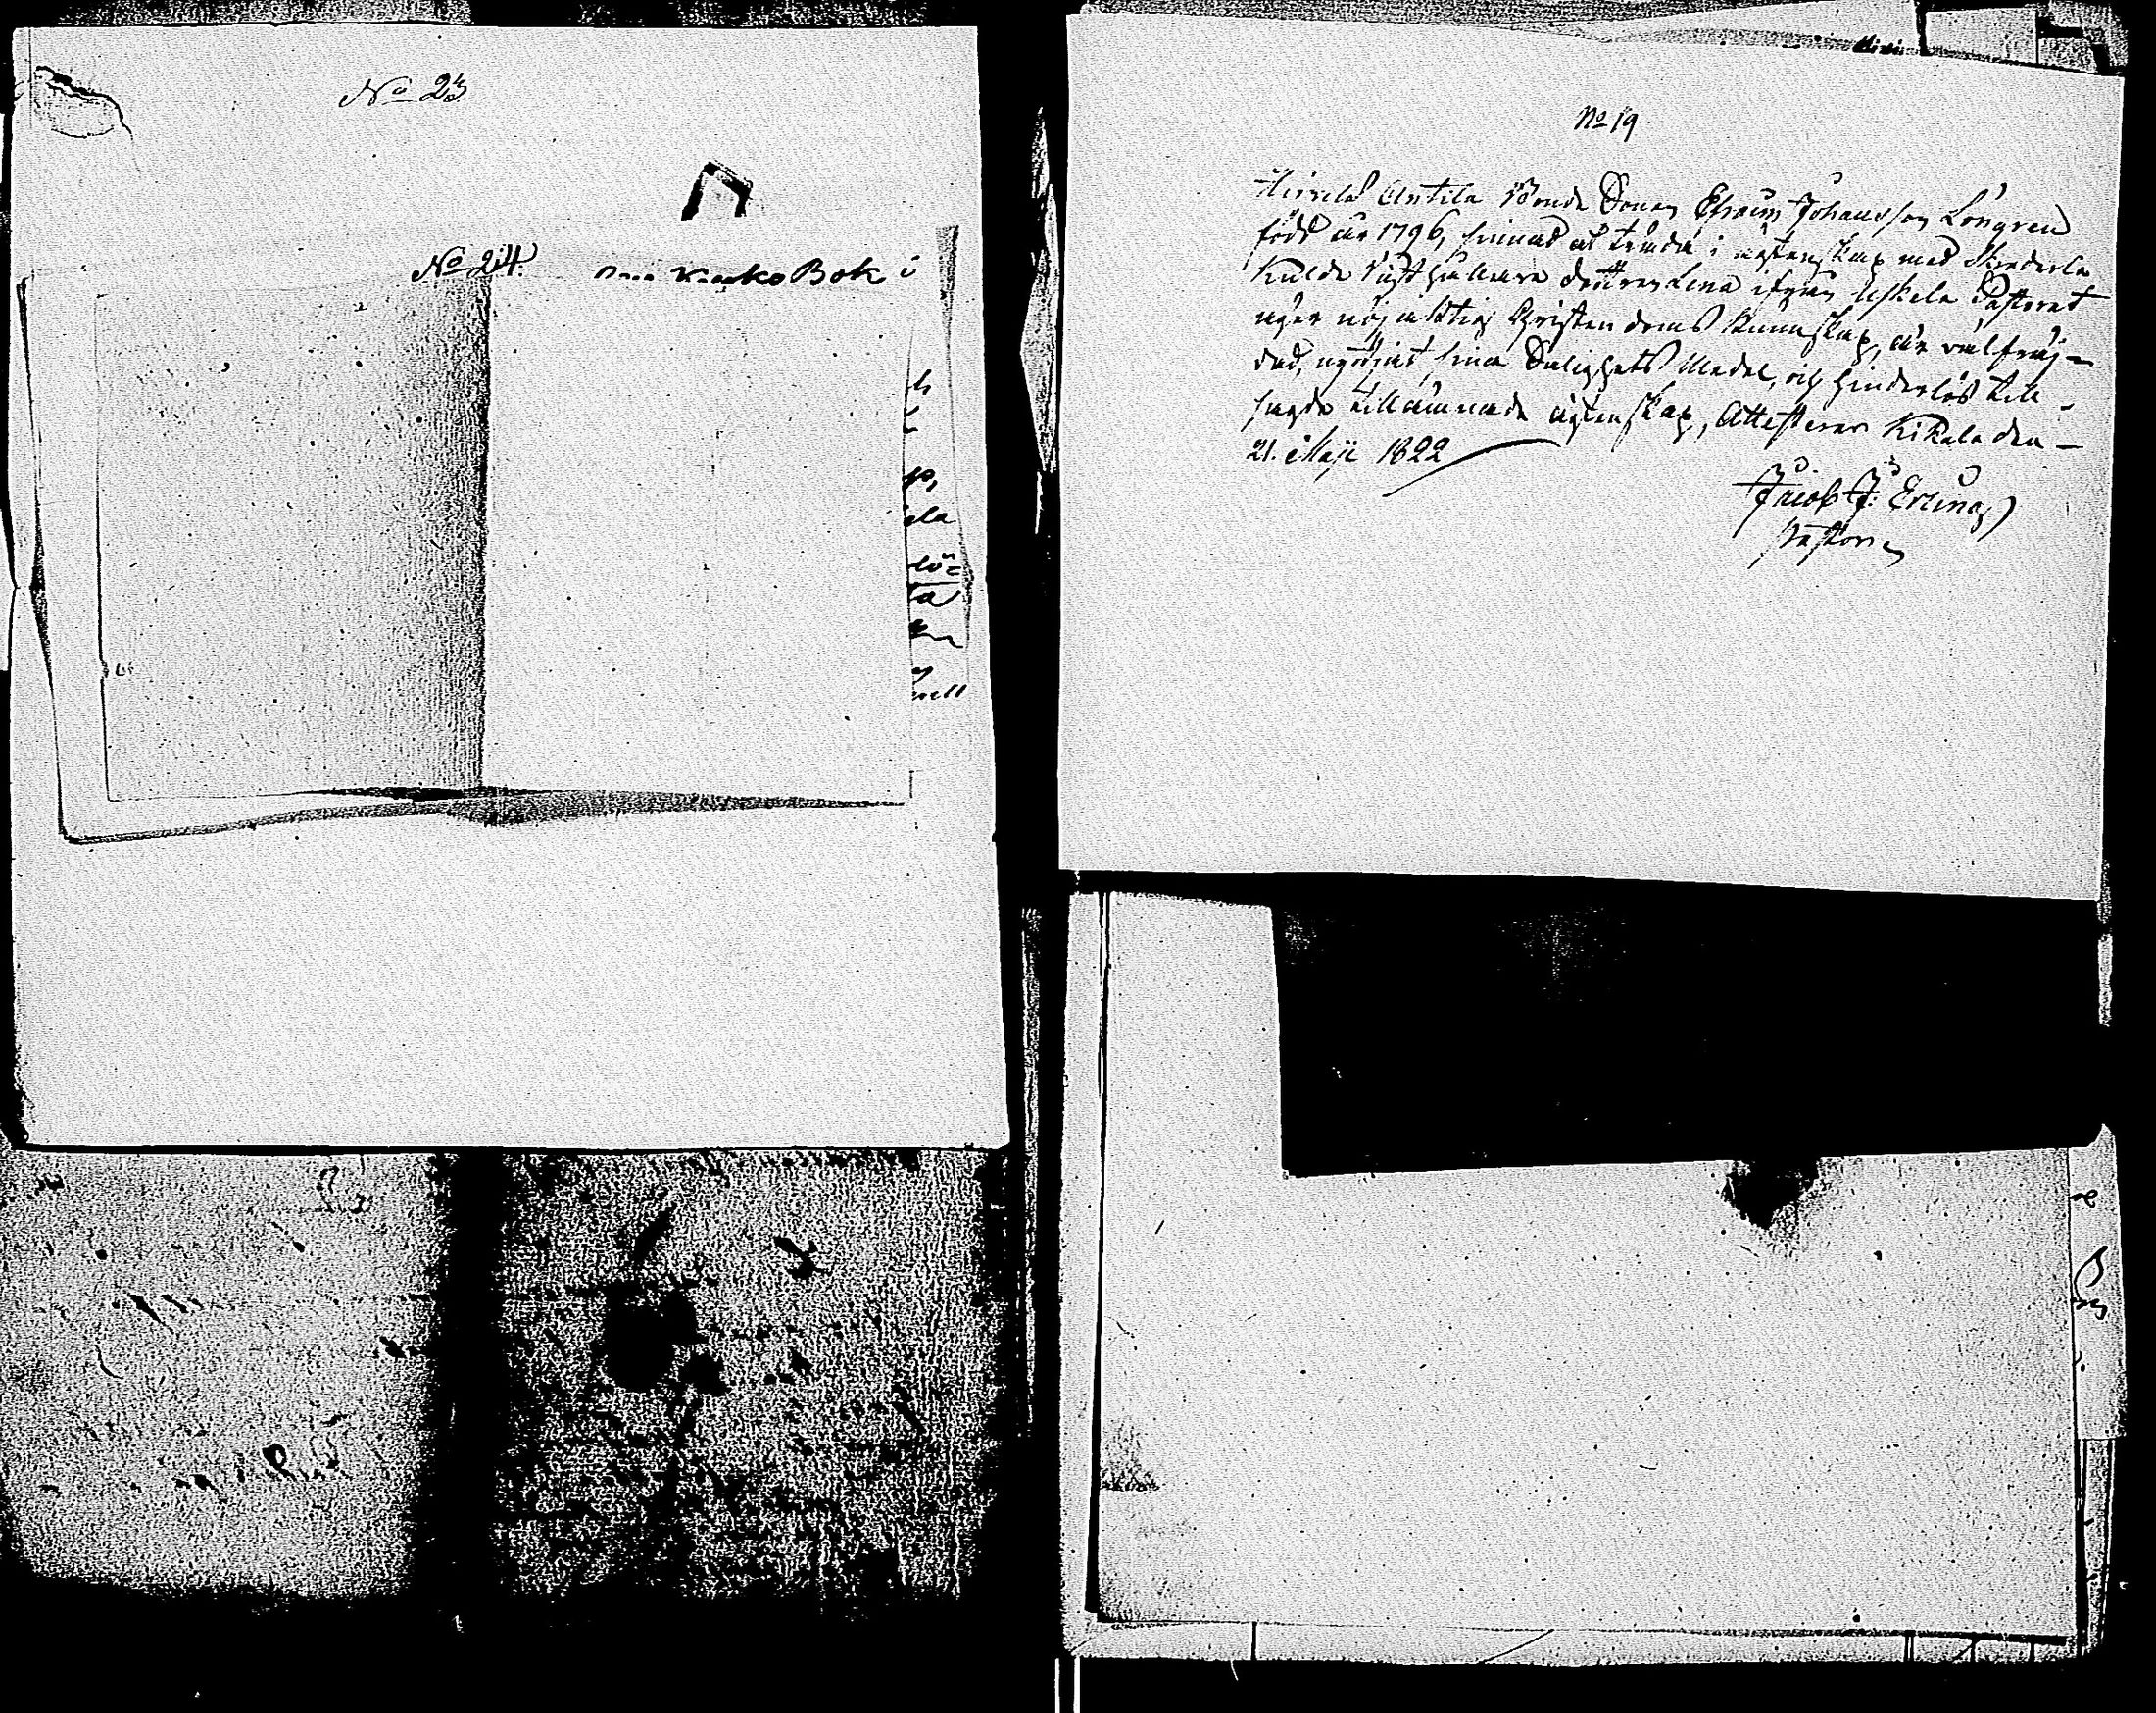 No 23
No 24.
Kyrko Bok i
la
No 19
Hirvelä Antila Bonde Sonen Efraim Johansson Löngren
född år 1796, sinnad at träda i ägtenskap med
Kulda Rusthållare dottren Lena ifrån Uskela Pastorat
äger nöjaktig Christendoms Kunnskap, är välfräj-
dad, nyttjat sina Salighets Medel, och hinderlös till
sagde tillämnade ägtenskap, Attesterar Kikala den
21. Maji 1822
Jacob J:
Pastor